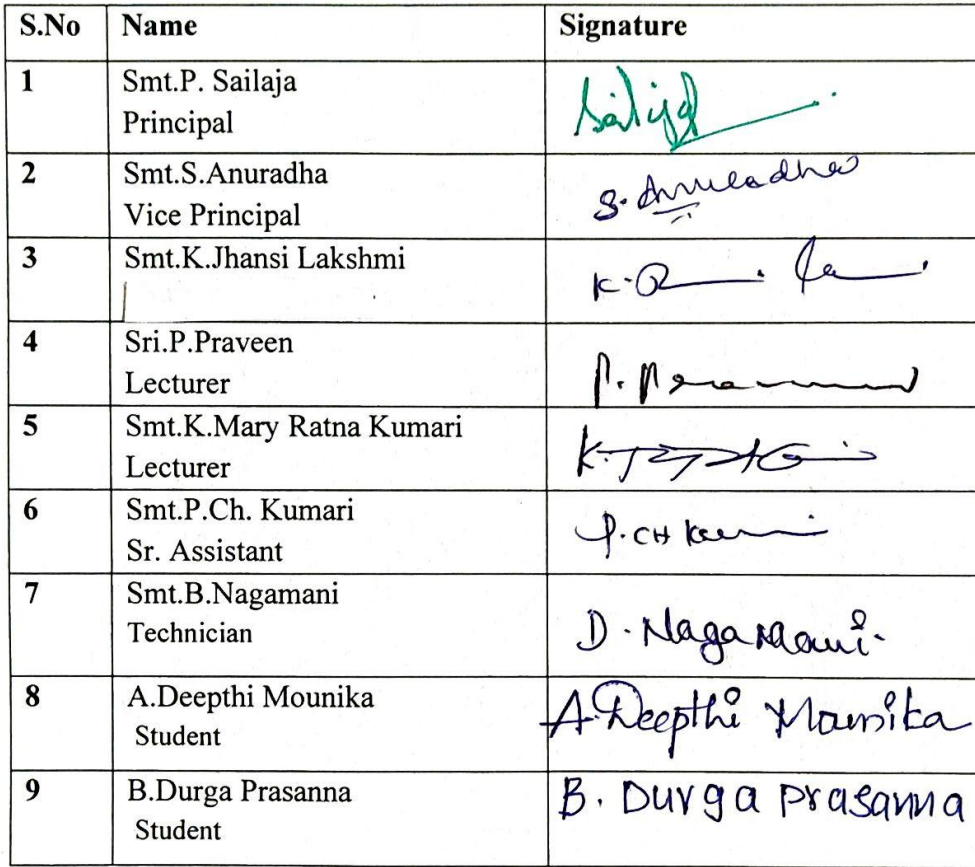 S.No Name Signature
1 Smt.P. Sailaja
Principal
Sailaja
2 Smt.S.Anuradha
Vice Principal
S. Anuradha
3 Smt.K.Jhansi Lakshmi
K.
4 Sri.P.Praveen
Lecturer
P.
5 Smt.K.Mary Ratna Kumari
Lecturer
K.
6 Smt.P.Ch. Kumari
Sr. Assistant
P. CH
7 Smt.B.Nagamani
Technician
D. Nagamani.
8 A.Deepthi Mounika
Student
A. Deepthi Mounika
9 B.Durga Prasanna
Student
B. Durga Prasanna